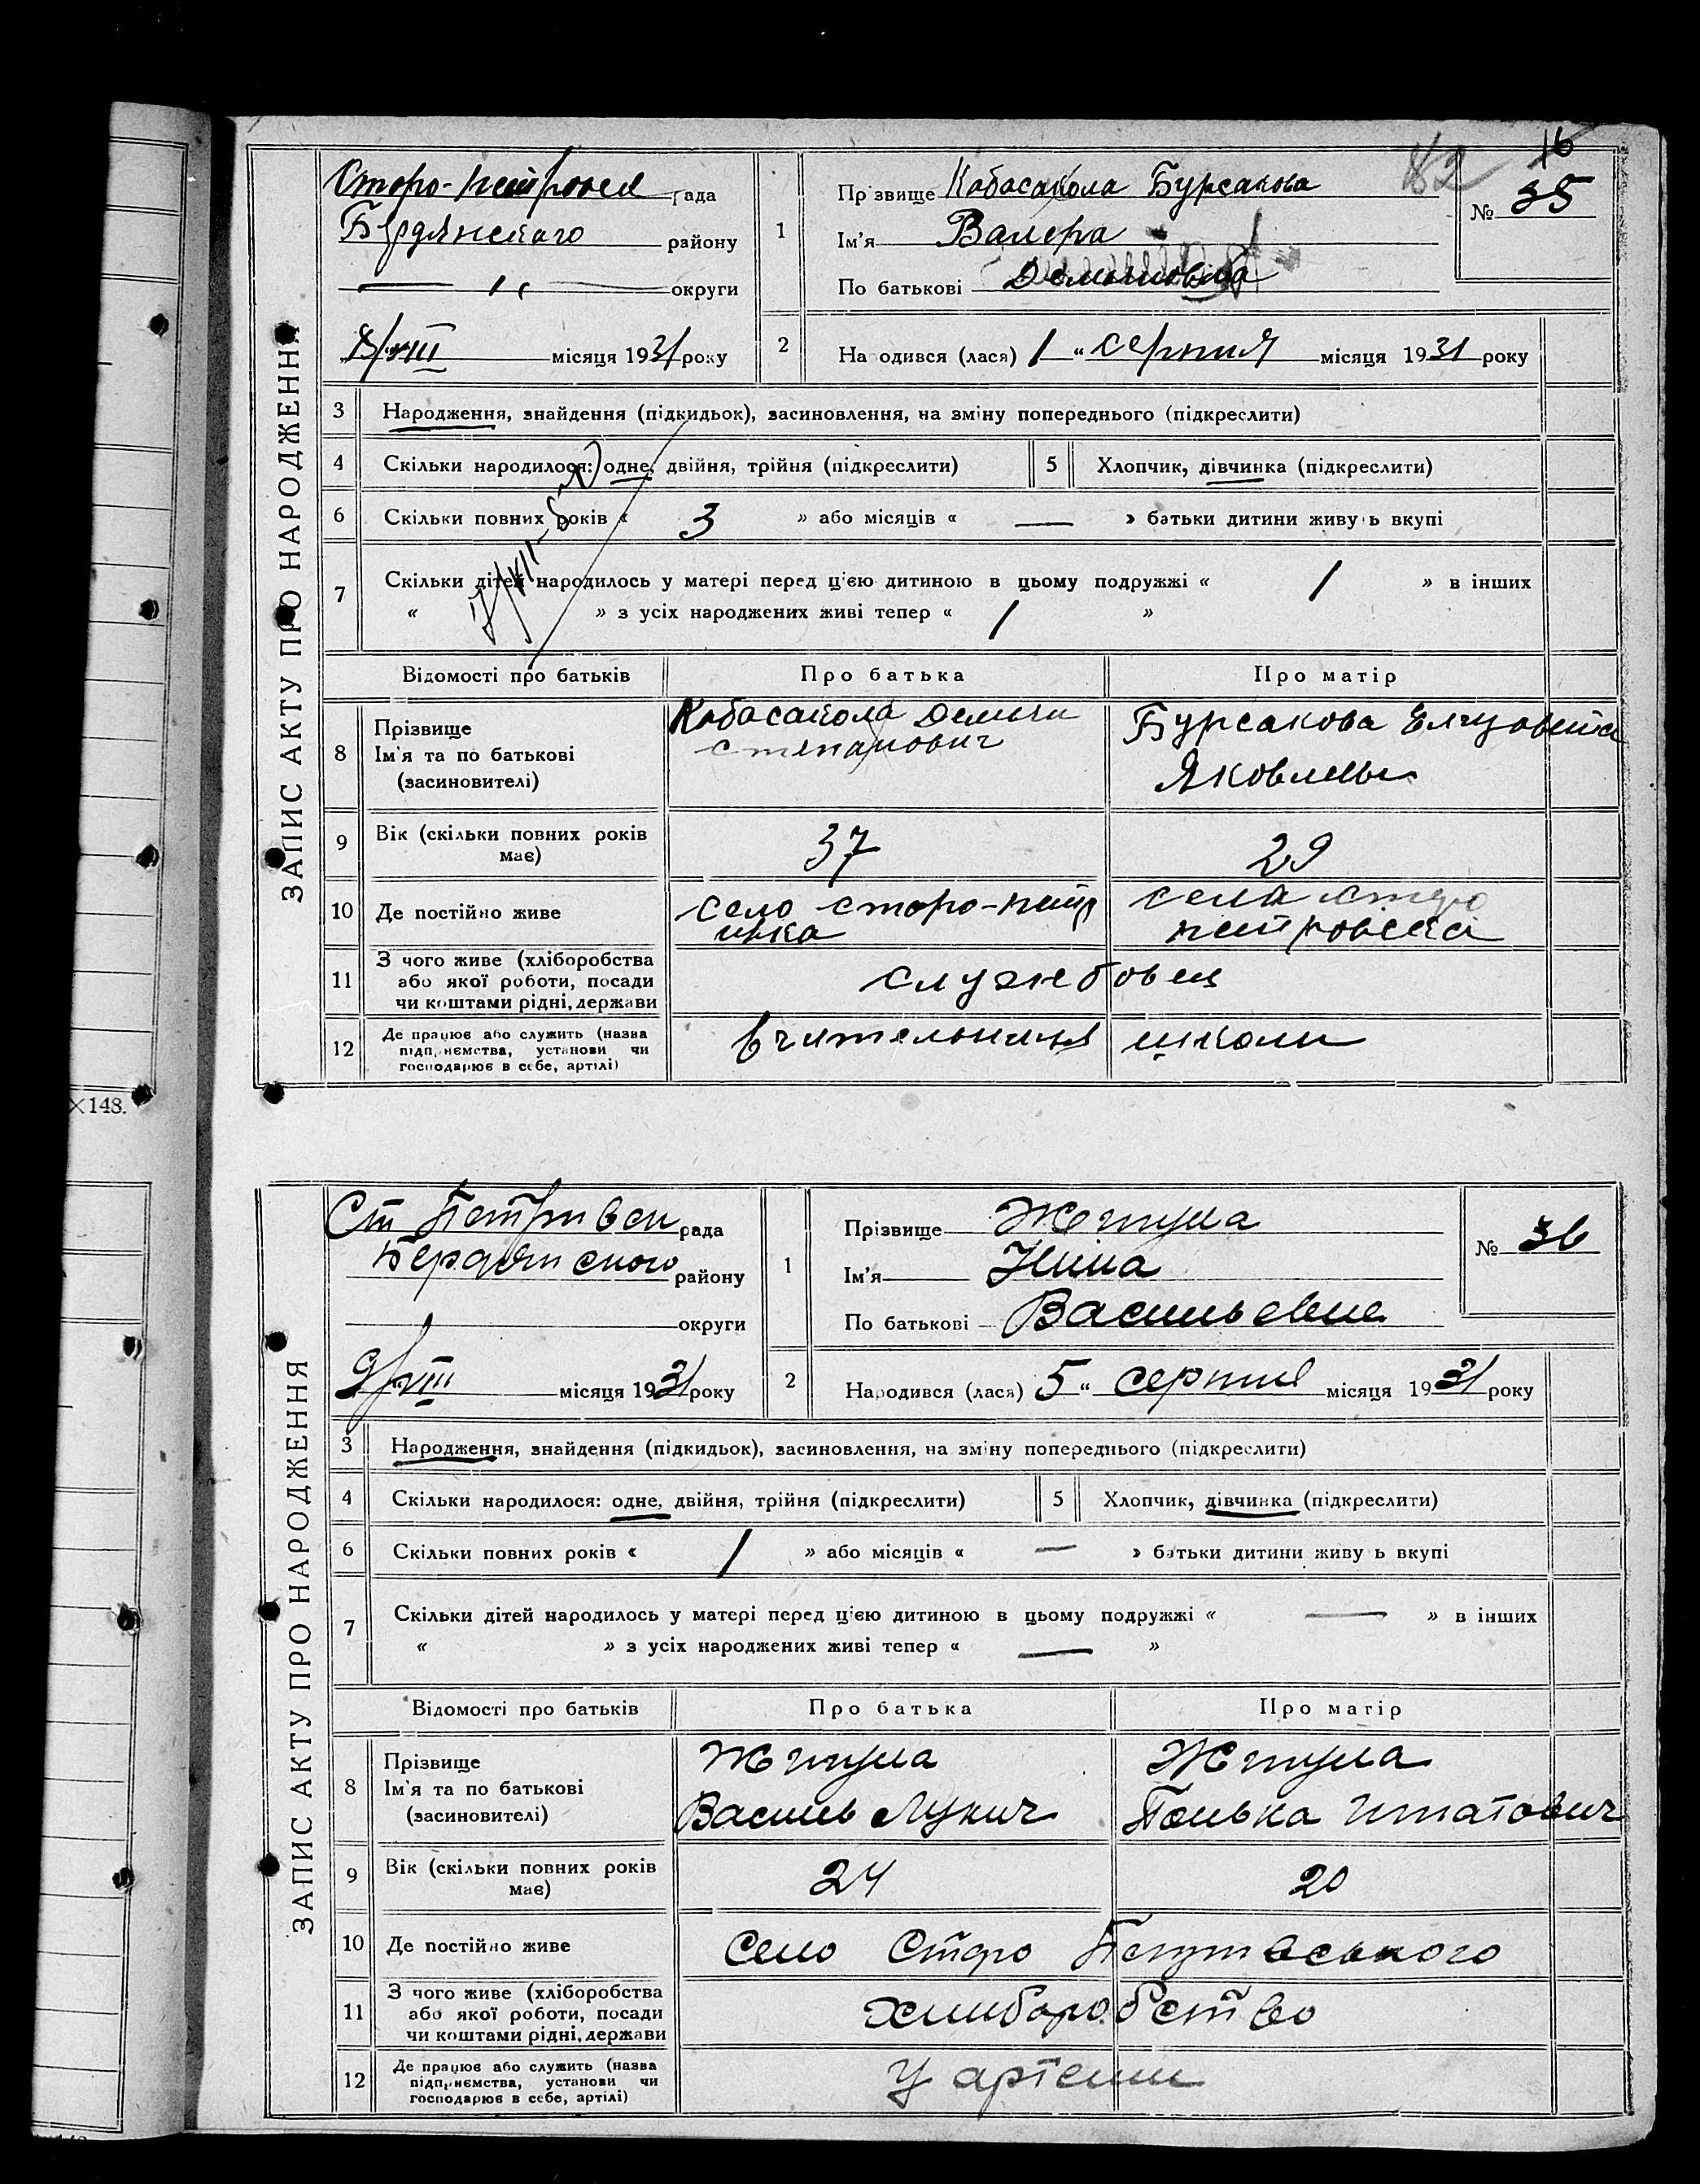 16
82
Сторо-петровся рада
Бердянского району
округи
8/VIII місяця 1931 року
1
Прізвище Кабасакола Бурсакова
Ім'я Валера
По батькові Демьяновна
№ 35
2
Народився (лася) 1 “ серпня місяця 1931 року
ЗАПИС АКТУ ПРО НАРОДЖЕННЯ
3 Народження, знайдення (підкидьок), засиновлення, на зміну попереднього (підкреслити)
4 Скільки народилося: одне, двійня, трійня (підкреслити)
5 Хлопчик, дівчинка (підкреслити)
6 Скільки повних років « 3 » або місяців « — » батьки дитини живу ь вкупі
7 Скільки дітей народилось у матері перед цією дитиною в цьому подружжі « 1 » в інших
« » з усіх народжених живі тепер « 1 »
Відомості про батьків Про батька Про матір
8 Прізвище
Ім'я та по батькові
(засиновителі)
Кабасакола Демьян
степанович
Бурсакова Елизовета
Яковлевна
9 Вік (скільки повних років
має)
37
29
10 Де постійно живе
село сторо-петр
ивка
села старо
петровска
11 З чого живе (хліборобства
або якої роботи, посади
чи коштами рідні, держави
службовец
12 Де працює або служить (назва
підприємства, установи чи
господарює в себе, артілі)
вчительниця школи
×148.
Ст Петривски рада
Бердянского району
округи
9/VIII місяця 1931 року
1
Прізвище Жетула
Ім'я Нина
По батькові Васильевна
№ 36
2
Народився (лася) 5 “ серпня місяця 1931 року
ЗАПИС АКТУ ПРО НАРОДЖЕННЯ
3 Народження, знайдення (підкидьок), засиновлення, на зміну попереднього (підкреслити)
4 Скільки народилося: одне, двійня, трійня (підкреслити)
5 Хлопчик, дівчинка (підкреслити)
6 Скільки повних років « 1 » або місяців « — » батьки дитини живу ь вкупі
7 Скільки дітей народилось у матері перед цією дитиною в цьому подружжі « — » в інших
« » з усіх народжених живі тепер « — »
Відомості про батьків Про батька Про матір
8 Прізвище
Ім'я та по батькові
(засиновителі)
Жетула
Василь Лукич
Жетула
Полька Игнатович
9 Вік (скільки повних років
має)
24
20
10 Де постійно живе
Село Старо Петривського
11 З чого живе (хліборобства
або якої роботи, посади
чи коштами рідні, держави
хлиборобство
12 Де працює або служить (назва
підприємства, установи чи
господарює в себе, артілі)
У артели